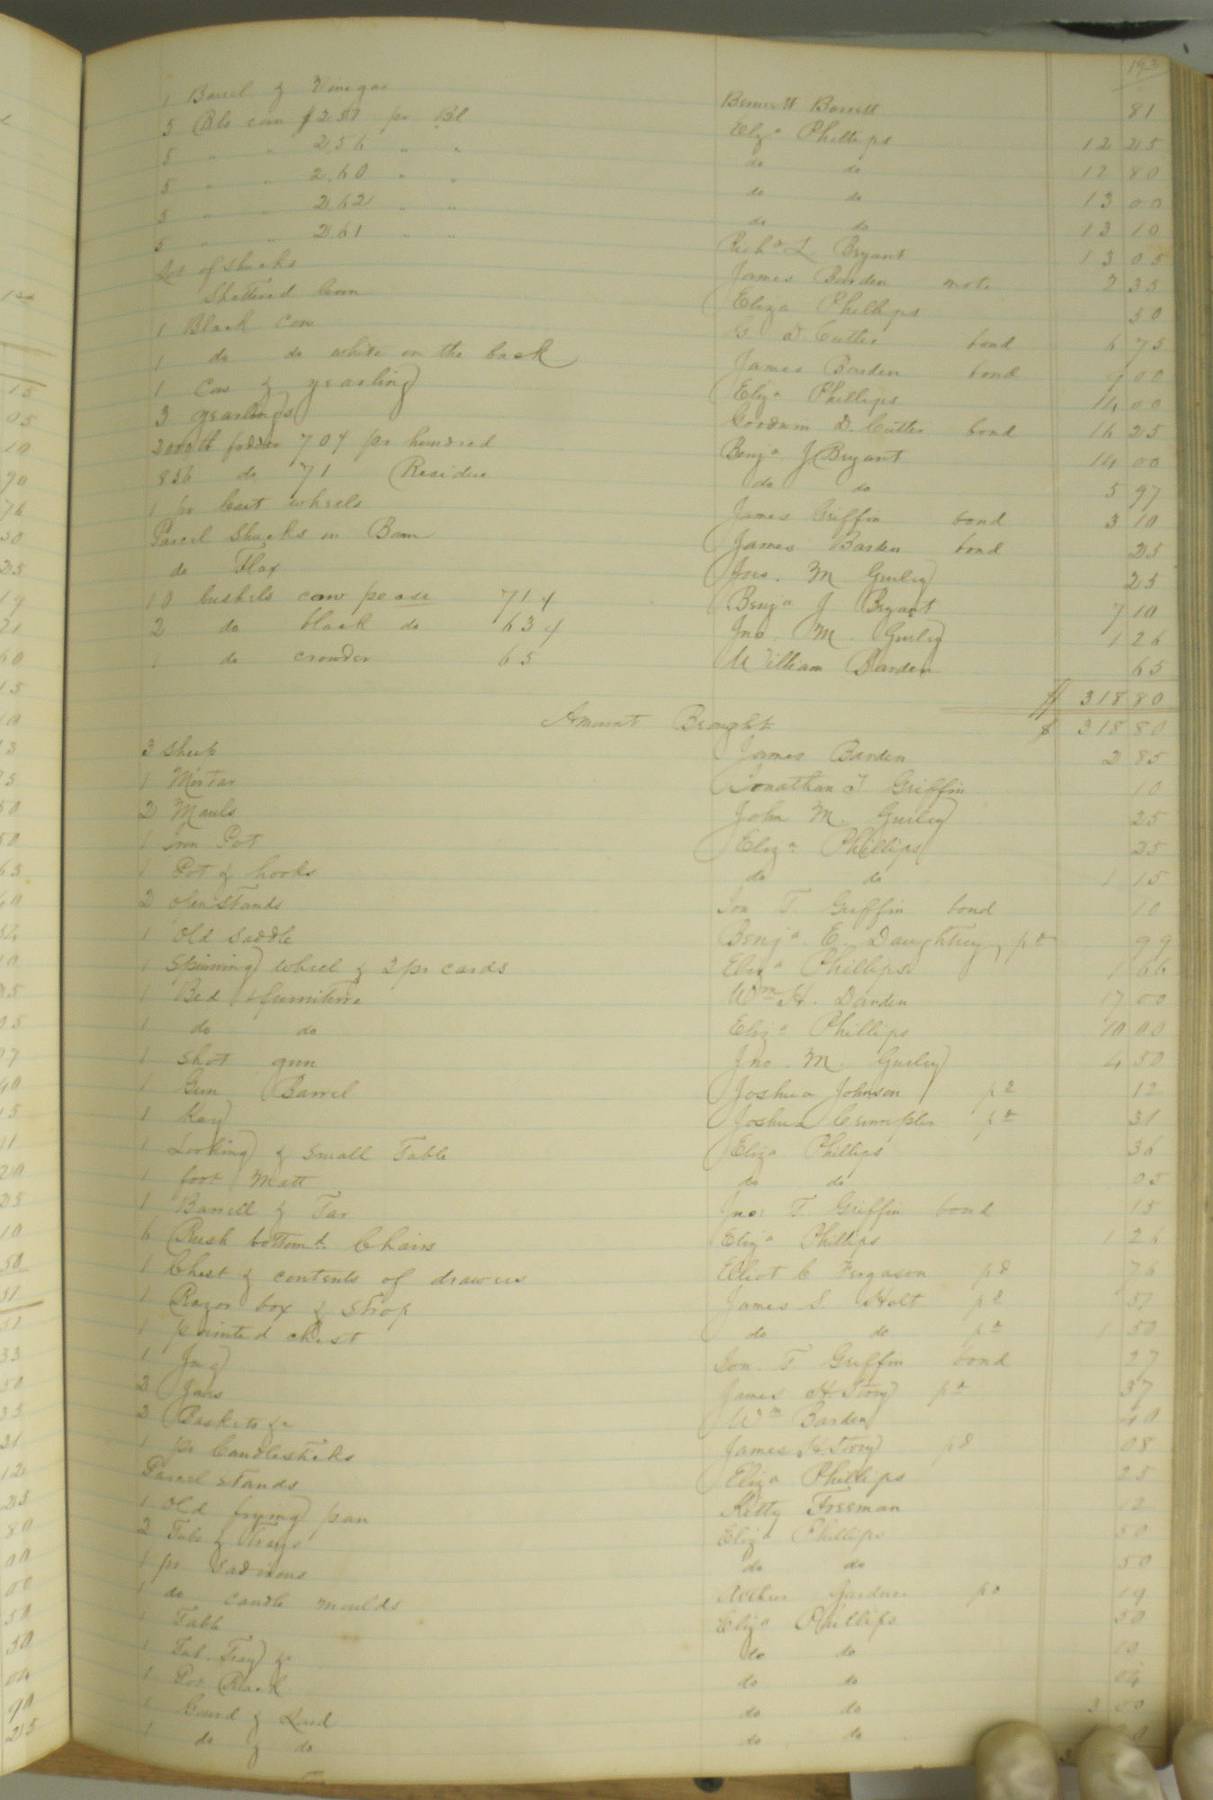 193
1 Barrel & Vinegar Bennett Barrett 81
5 Bls corn $2.51 pr Bl Eliza Phillips 12 25
5 " " 2.56 " " do do 12 80
5 " " 2.60 " " do do 13 00
5 " " 2.62 " " do do 13 10
5 " " 2.61 " " Richd L Bryant 13 05
Lot of Shucks James Barden note 2 35
Shattered Corn Eliza Phillips 50
1 Black Cow G D. Cutler bond 6 75
1 do do white on the back James Barden bond 9 00
1 Cow & yearling Eliza Phillips 14 00
3 yearlings Goodwin D. Cutler bond 16 25
2000 lb fodder 70 ¢ pr hundred Benja J Bryant 14 00
836 do 71 Residue do do 5 97
1 pr Cart wheels James Griffin bond 3 10
Parcel Shucks in Barn James Barden bond 25
do Flax Jno. M. Gurley 25
10 bushels cow pease 71 ¢ Benja J Bryant 7 10
2 do black do 63 ¢ Jno. M. Gurley 1 26
1 do crowder 65 William Barden 65
$ 318 80
Amount Brought $ 318 80
3 Sheep James Barden 2 85
1 Mortar Jonathan T Griffin 10
2 Mauls John M. Gurley 25
1 Iron Pot Eliza Phillips 25
1 Pot & hooks do do 1 15
2 Stands Jon T. Griffin bond 10
1 Old Saddle Benja. E. Daughtrey pd 99
1 Spinning wheel & 2 pr cards Eliza Phillips 1 66
1 Bed & furniture Wm H. Darden 17 00
1 do do Eliza Phillips 10 00
1 Shot gun Jno. M. Gurley 4 50
1 Gun Barrel Joshua Johnson pd 12
1 Keg Joshua Crumpler pd 31
1 Looking & Small Table Eliza Phillips 36
1 foot Matt do do 05
1 Barrell & Tar Jno: T. Griffin bond 15
6 Rush bottomd Chairs Eliza Phillips 1 26
1 Chest & contents of drawers Elliot C Ferguson pd 76
1 Razor box & Strop James S. Holt pd 51
1 painted chest do do pd 1 50
1 Jug Jon. T. Griffin bond 27
2 Jars James H. Story pd 37
3 Baskets &c Wm Barden 40
1 pr Candlesticks James H Story pd 08
Parcel Stands Eliza Phillips 25
1 old frying pan Kitty Freeman 12
2 Tubs & Trays Eliza Phillips 50
1 pr Sad irons do do 50
1 do candle moulds Arthur Gardner pd 19
1 Table Eliza Phillips 50
1 Tub. Tray &c do do 10
1 Pot Rack do do 04
1 Gourd & Lard do do 3 00
1 do & do do do